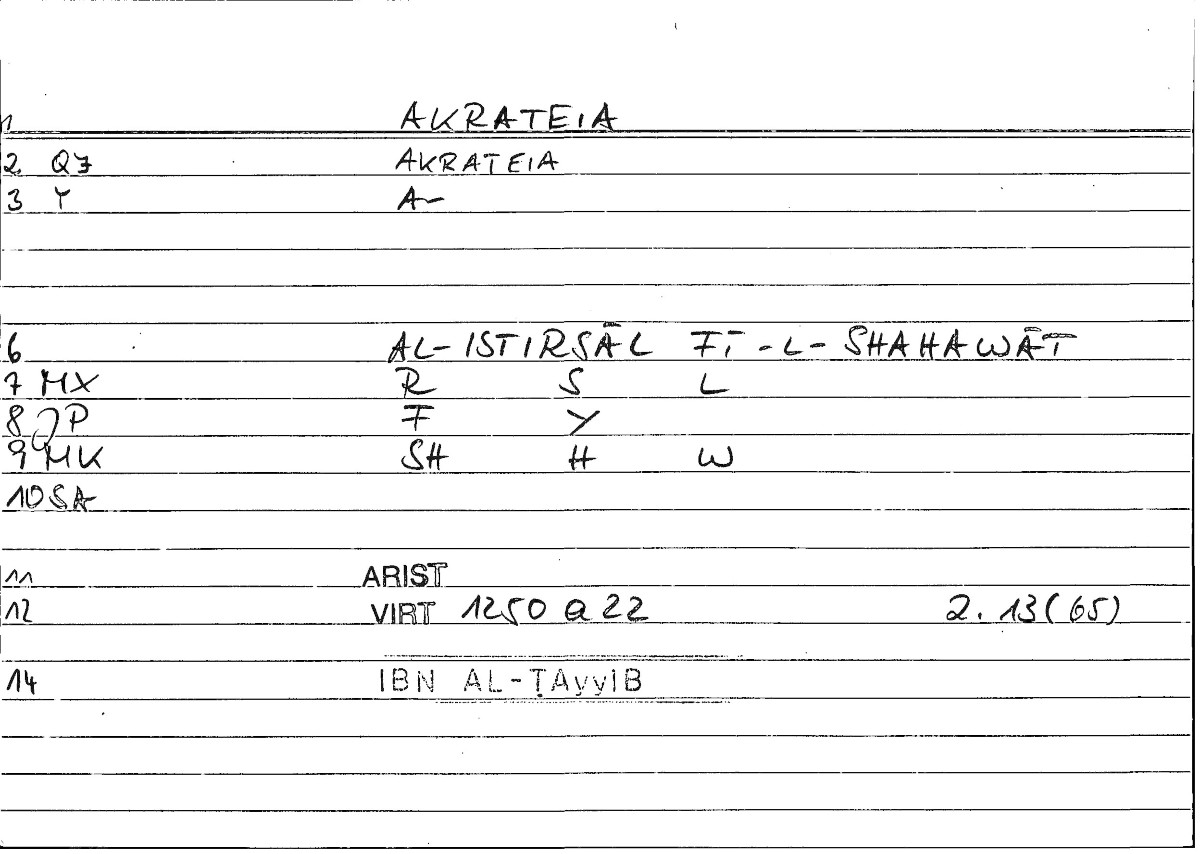 1 AKRATEIA
2 QJ AKRATEIA
3 Y A~
6 AL-ISTIRSĀL FĪ-L-SHAHAWĀT
7 MX R S L
8 JP F Y
9 MK SH H W
10 SA
11 ARIST
12 VIRT 1250 a 22 2.13(65)
14 IBN AL-ṬAyyIB